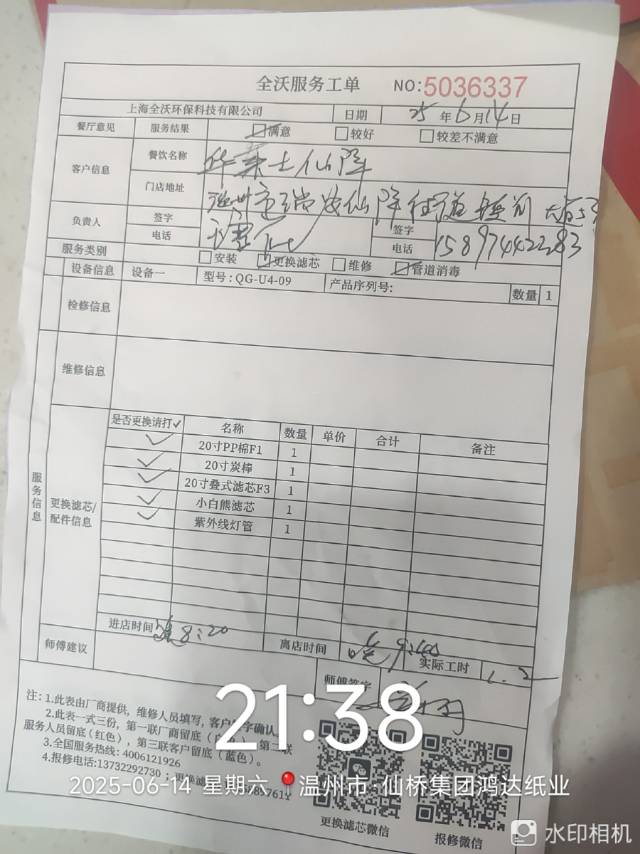 全沃服务工单 NO:5036337
上海全沃环保科技有限公司 日期 25 年 6 月 14 日
餐厅意见 服务结果 满意 较好 较差不满意
客户信息 餐饮名称 华莱士仙降
门店地址 温州市瑞安仙降街道
负责人 签字 签字
电话 电话 15897442283
服务类别 安装 更换滤芯 维修 管道消毒
设备信息 设备一 型号: QG-U4-09 产品序列号: 数量 1
检修信息
维修信息
服务信息
更换滤芯/配件信息
是否更换请打✓ 名称 数量 单价 合计 备注
✓ 20寸PP棉F1 1
✓ 20寸炭棒 1
✓ 20寸叠式滤芯F3 1
✓ 小白熊滤芯 1
✓ 紫外线灯管 1
进店时间 晚8:20 离店时间 晚9:40 实际工时 1.2
师傅建议 师傅签字
注: 1.此表由厂商提供, 维修人员填写, 客户签字确认。
2.此表一式三份, 第一联厂商留底 第二联
服务人员留底(红色), 第三联客户留底(蓝色)。
3.全国服务热线: 4006121926
4.报修电话:13732292730 ; 更换滤
更换滤芯微信 报修微信
21:38
2025-06-14 星期六 温州市·仙桥集团鸿达纸业
水印相机